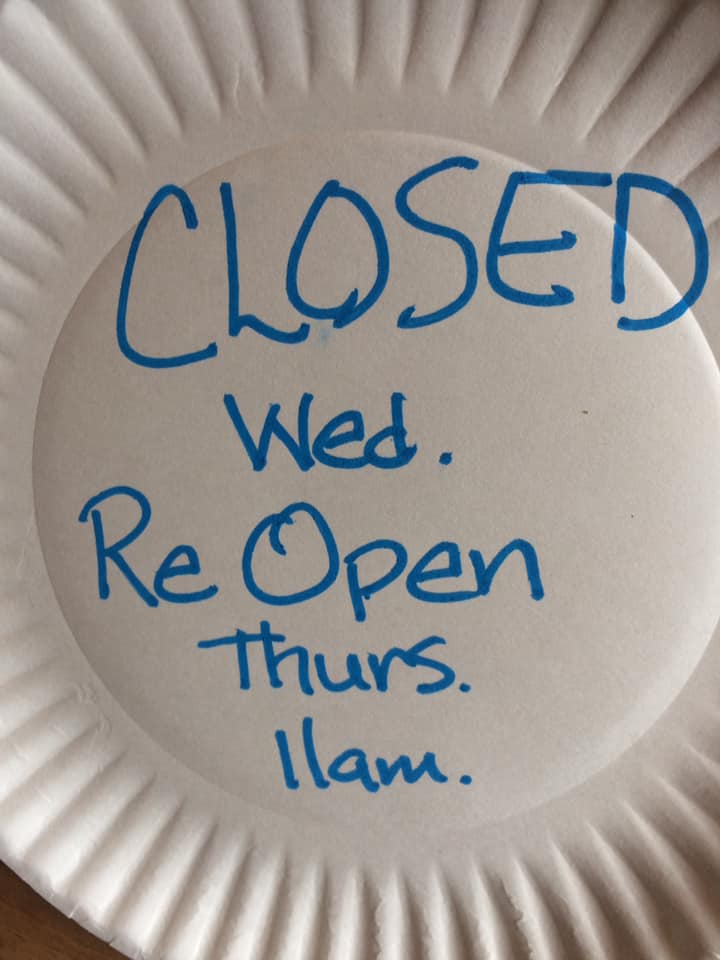 CLOSED
Wed.
Re Open
Thurs.
11am.